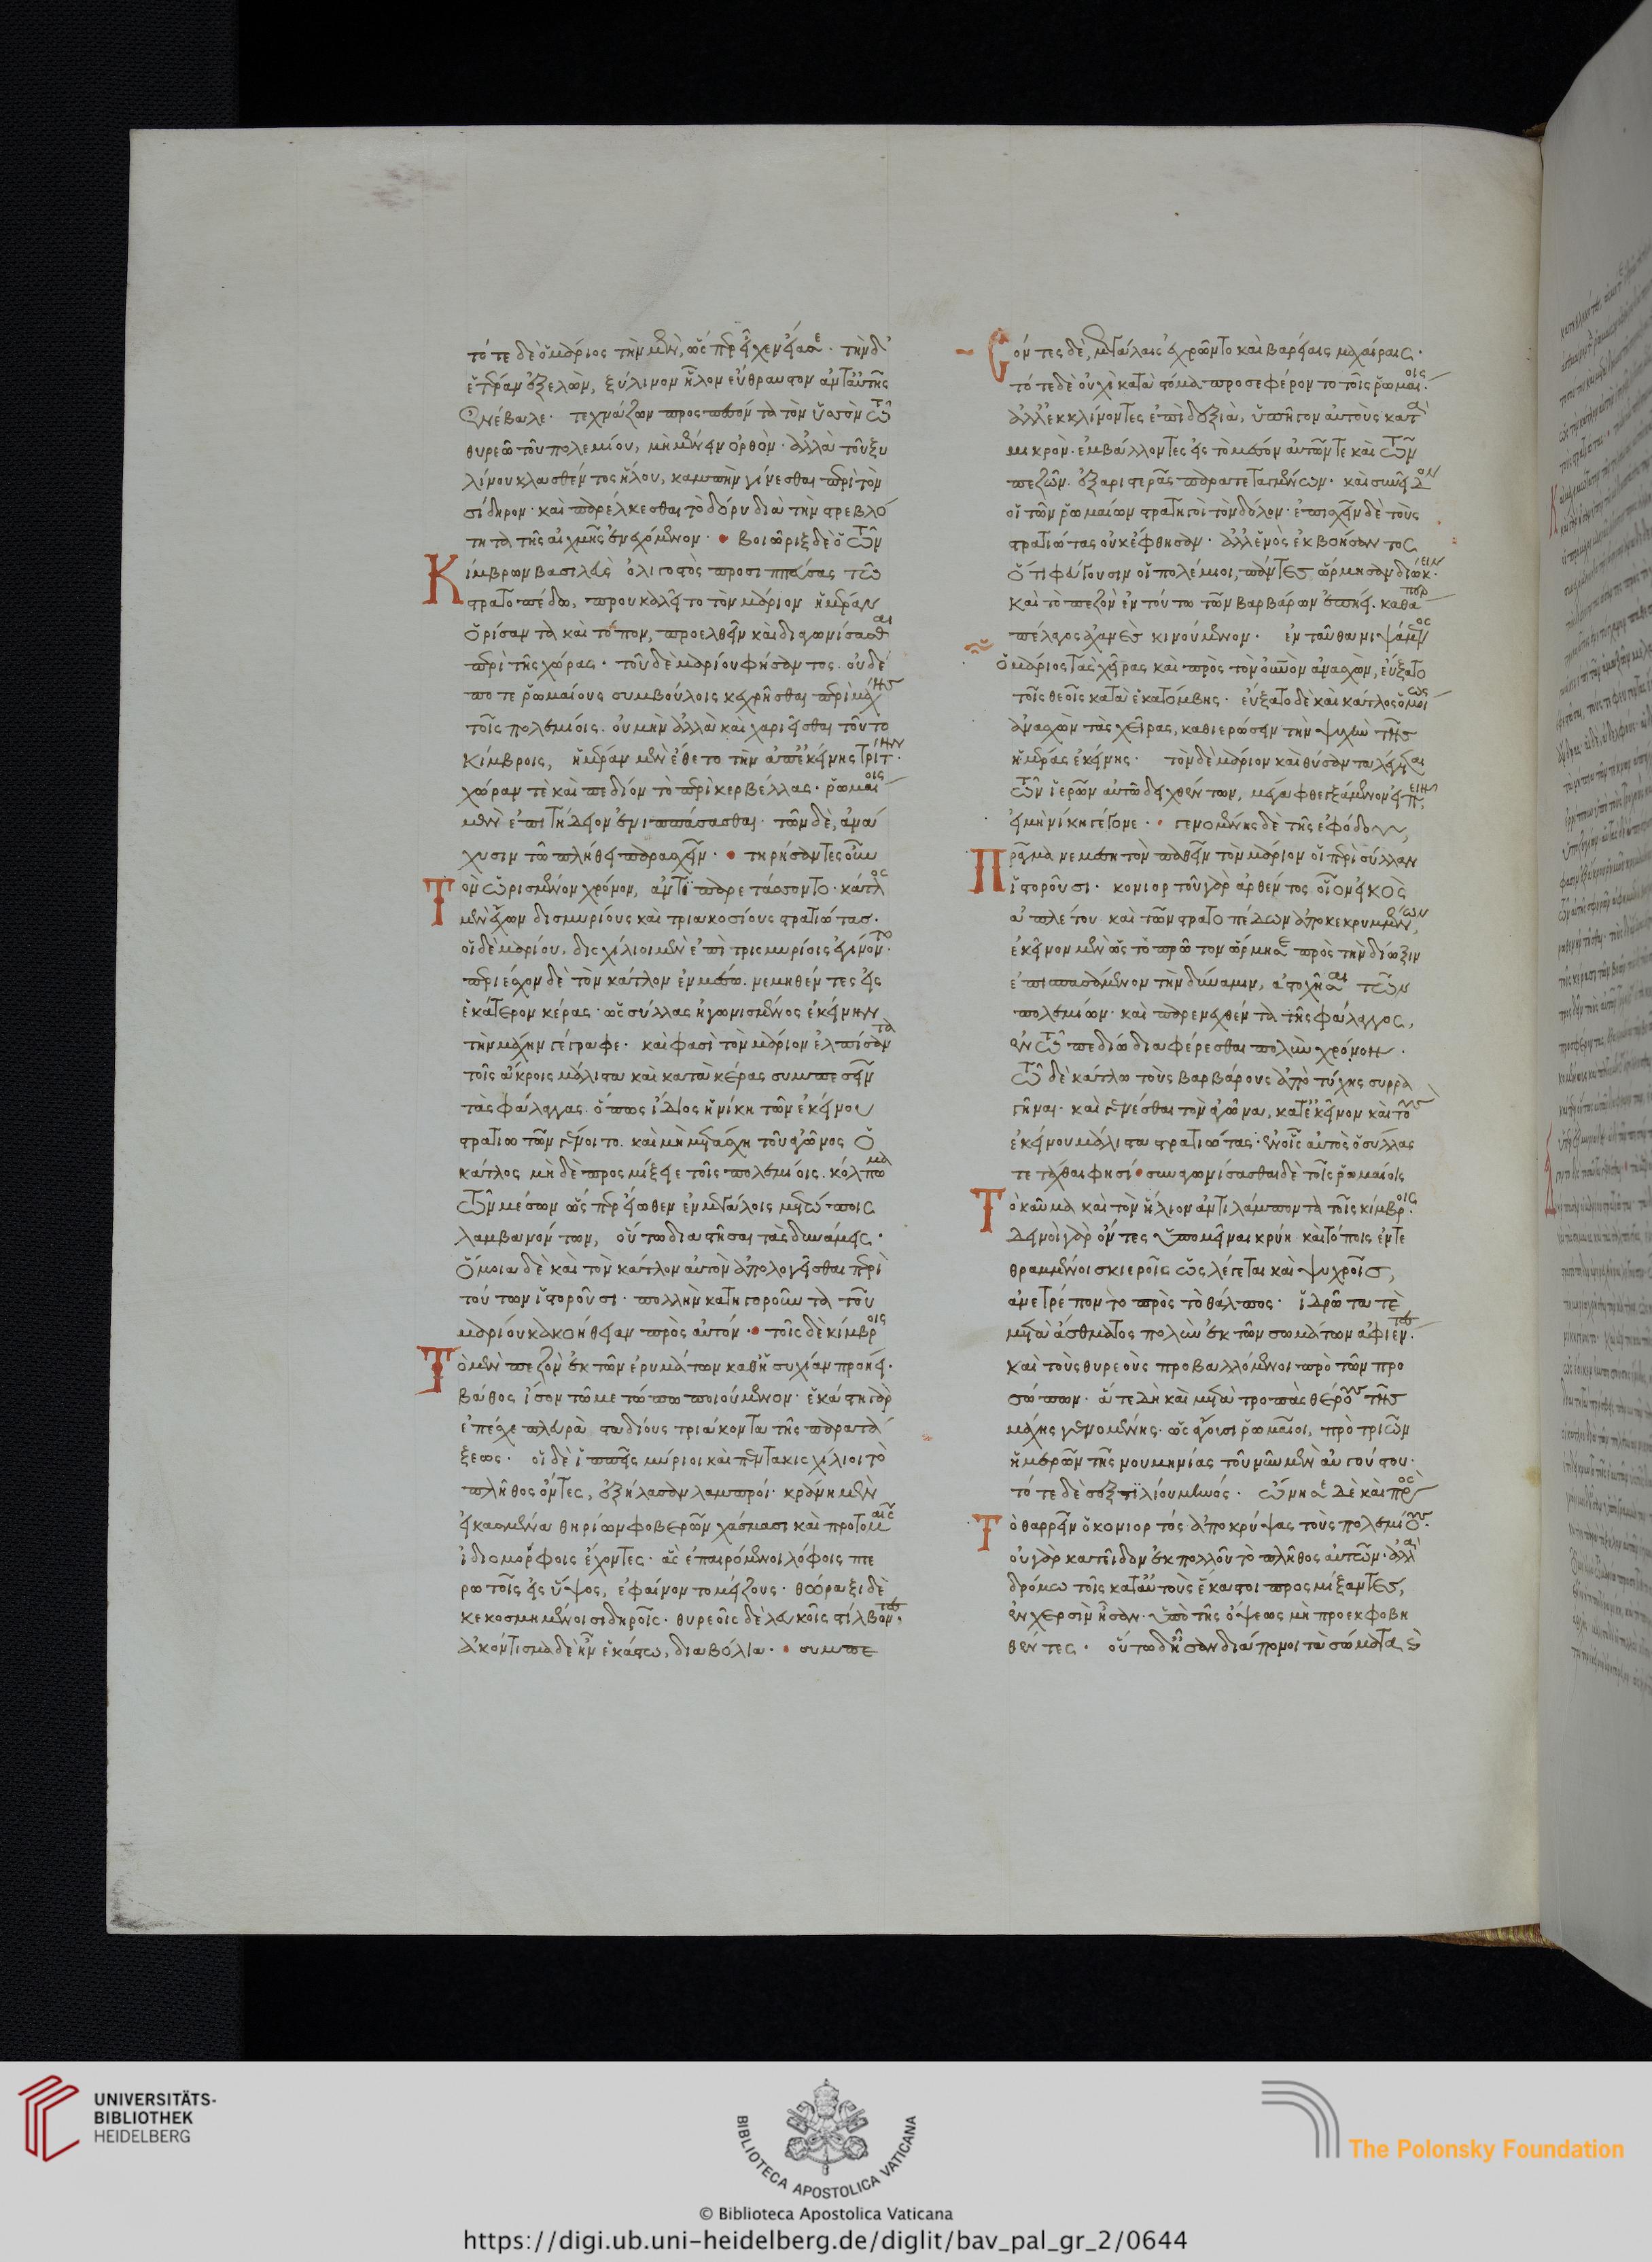 τότε δὲ ὁ μάριος τὴν μὲν, ὥσπερ εἶχεν εἴασε. τὴν δ'
ἑτέραν ἐξελὼν, ξύλινον ἧλον εὔθραυστον ἀντ' αὐτῆς
ἐνέβαλε. τεχνάζων προσπεσόντα τὸν ὑσσὸν τῶ
θυρεῶ τοῦ πολεμίου, μὴ μένειν ὀρθὸν. ἀλλὰ τοῦ ξυ
λίνου κλασθέντος ἥλου, καμπὴν γίνεσθαι περὶ τὸν
σίδηρον. καὶ παρέλκεσθαι τὸ δόρυ διὰ τὴν στρεβλό
τητα τῆς αἰχμῆς ἐνεχόμενον. βοιῶριξ δὲ ὁ τῶν
Κίμβρων βασιλεὺς ὀλιγοστὸς προσιππεύσας τῶ
στρατοπέδω, προυκαλεῖτο τὸν μάριον ἡμέραν
ὁρίσαντα καὶ τόπον, προελθεῖν καὶ διαγωνίσασθαι
περὶ τῆς χώρας. τοῦ δὲ μαρίου φήσαντος. οὐδέ
ποτε ῥωμαίους συμβούλοις κεχρῆσθαι περὶ μάχης
τοῖς πολεμίοις. οὐ μὴν ἀλλὰ καὶ χαριεῖσθαι τοῦτο
κίμβροις, ἡμέραν μὲν ἔθετο τὴν ἀπ' ἐκείνης τρίτην.
χώραν τὲ καὶ πεδίον τὸ περὶ κερβέλλας. ῥωμαίοις
μὲν ἐπιτήδειον ἐνιππάσασθαι. τῶν δὲ, ἀνά
χυσιν τῶ πλήθει παρασχεῖν. τηρήσαντες οὖν
Τὸν ὡρισμένον χρόνον, ἀντιπαρετάσσοντο. κάτλος
μὲν ἔχων δισμυρίους καὶ τριακοσίους στρατιώτας.
οἱ δὲ μαρίου, δισχίλιοι μὲν ἐπὶ τρισμυρίοις ἐγίνοντο.
περιέχον δὲ τὸν κάτλον ἐν μέσω. νεμηθέντες εἰς
ἑκάτερον κέρας. ὡς σύλλας ἠγωνισμένος ἐκείνην
τὴν μάχην γέγραφε. καὶ φασὶ τὸν μάριον ἐλπίσαντα
τοῖς ἄκροις μάλιστα καὶ κατὰ κέρας συμπεσεῖν
τὰς φάλαγγας. ὅπως ἴδιος ἡ νίκη τῶν ἐκείνου
στρατιωτῶν γένοιτο. καὶ μὴ μετάσχη τοῦ ἀγῶνος ὁ
κάτλος μὴ δὲ προσμίξειε τοῖς πολεμίοις. κόλπωμα
τῶν μέσων ὥσπερ εἴωθεν ἐν μεγάλοις μετώποις
λαμβανόντων, οὕτω διαστῆσαι τὰς δυνάμεις.
ὅμοια δὲ καὶ τὸν κάτλον αὐτὸν ἀπολογεῖσθαι περὶ
τούτων ἱστοροῦσι. πολλὴν κατηγοροῦντα τοῦ
μαρίου κακοήθειαν πρὸς αὐτόν. τοῖς δὲ κίμβροις
Τὸ μὲν πεζὸν ἐκ τῶν ἐρυμάτων καθ' ἡσυχίαν προήει.
βάθος ἴσον τῶ μετώπω ποιούμενον. ἑκάστη γὰρ
ἐπέσχε πλευρὰ σταδίους τριάκοντα τῆς παρατά
ξεως. οἱ δὲ ἱππεῖς μύριοι καὶ πεντακισχίλιοι τὸ
πλῆθος ὄντες, ἐξήλασαν λαμπροί. κράνη μὲν
εἰκασμένα θηρίων φοβερῶν χάσμασι καὶ προτομαῖς
ἰδιομόρφοις ἔχοντες. ἃς ἐπαιρόμενοι λόφοις πτε
ρωτοῖς εἰς ὕψος, ἐφαίνοντο μείζους. θώραξι δὲ
κεκοσμημένοι σιδηροῖς. θυρεοῖς δὲ λευκοῖς στίλβοντες.
ἀκόντισμα δὲ ἦν ἑκάστω, διαβολία. συμπε
Σόντες δὲ, μεγάλαις ἐχρῶντο καὶ βαρείαις μαχαίραις.
τότε δὲ οὐχὶ κατὰ στόμα προσεφέροντο τοῖς ῥωμαίοις.
ἀλλ' ἐκκλίνοντες ἐπὶ δεξιὰ, ὑπῆγον αὐτοὺς κατὰ
μικρὸν. ἐμβάλλοντες εἰς τὸ μέσον αὐτῶν τε καὶ τῶν
πεζῶν. ἐξ ἀριστερᾶς παρατεταγμένων. καὶ συνεῖδον
οἱ τῶν ῥωμαίων στρατηγοὶ τὸν δόλον. ἐπισχεῖν δὲ τοὺς
στρατιώτας οὐκ ἔφθησαν. ἀλλ' ἑνὸς ἐκβοήσαντος
ὅτι φεύγουσιν οἱ πολέμιοι, πάντες ὥρμησαν διώκειν.
καὶ τὸ πεζὸν ἐν τούτω τῶν βαρβάρων ἐπήει. καθάπερ
πέλαγος ἀχανὲς κινούμενον. ἐνταῦθα νιψάμενος
ὁ μάριος τὰς χεῖρας καὶ πρὸς τὸν οὐρανὸν ἀνασχὼν, εὔξατο
τοῖς θεοῖς κατὰ ἑκατόμβης. εὔξατο δὲ καὶ κάτλος ὁμοίως
ἀνασχὼν τὰς χεῖρας, καθιερώσειν τὴν ψυχὴν τῆς
ἡμέρας ἐκείνης. τὸν δὲ μάριον καὶ θύσαντα λέγεται
τῶν ἱερῶν αὐτῶ δειχθέντων, μέγα φθεγξάμενον εἰπεῖν,
ἐμὴ νίκη γέγονε. γενομένης δὲ τῆς ἐφόδου,
Πρᾶγμα νεμεσητὸν παθεῖν τὸν μάριον οἱ περὶ σύλλαν
ἱστοροῦσι. κονιορτοῦ γὰρ ἀρθέντος οἷον εἰκὸς
ἀπλέτου. καὶ τῶν στρατοπέδων ἀποκεκρυμμένων,
ἐκεῖνον μὲν ὡς τὸ πρῶτον ὥρμησε πρὸς τὴν δίωξιν
ἐπισπασάμενον τὴν δύναμιν, ἀστοχῆσαι τῶν
πολεμίων. καὶ παρενεχθέντα τῆς φάλαγγος,
ἐν τῶ πεδίω διαφέρεσθαι πολὺν χρόνον.
τῶ δὲ κάτλω τοὺς βαρβάρους ἀπὸ τύχης συρρα
γῆναι. καὶ γενέσθαι τὸν ἀγῶνα, κατ' ἐκεῖνον καὶ τοὺς
ἐκείνου μάλιστα στρατιώτας. ἐν οἷς αὐτὸς ὁ σύλλας
τετάχθαι φησί. συναγωνίσασθαι δὲ τοῖς ῥωμαίοις
Τὸ καῦμα καὶ τὸν ἥλιον ἀντιλάμποντα τοῖς κίμβροις.
δεινοὶ γὰρ ὄντες ὑπομεῖναι κρύη. καὶ τόποις ἐντε
θραμμένοι σκιεροῖς ὡς λέγεται καὶ ψυχροῖς,
ἀνετρέποντο πρὸς τὸ θάλπος. ἱδρῶτα τὲ
μετὰ ἄσθματος πολὺν ἐκ τῶν σωμάτων ἀφιέντες.
καὶ τοὺς θυρεοὺς προβαλλόμενοι πρὸ τῶν προ
σώπων. ἅτε δὴ καὶ μετὰ τροπὰς θέρους τῆς
μάχης γενομένης. ἃς ἄγουσι ῥωμαῖοι, πρὸ τριῶν
ἡμερῶν τῆς νουμηνίας τοῦ νῦν μὲν αὐγούστου.
τότε δὲ σεξτιλίου μηνός. ὤνησε δὲ καὶ πρὸς
Τὸ θαρρεῖν ὁ κονιορτός ἀποκρύψας τοὺς πολεμίους.
οὐ γὰρ κατεῖδον ἐκ πολλοῦ τὸ πλῆθος αὐτῶν. ἀλλὰ
δρόμω τοῖς κατ' αὐτοὺς ἕκαστοι προσμίξαντες,
ἐν χερσὶν ἦσαν. ὑπὸ τῆς ὄψεως μὴ προεκφοβη
θέντες. οὕτω δ' ἦσαν διάπονοι τὰ σώματα καὶ
UNIVERSITÄTS-
BIBLIOTHEK
HEIDELBERG
BIBLIOTECA APOSTOLICA VATICANA
The Polonsky Foundation
© Biblioteca Apostolica Vaticana
https://digi.ub.uni-heidelberg.de/diglit/bav_pal_gr_2/0644